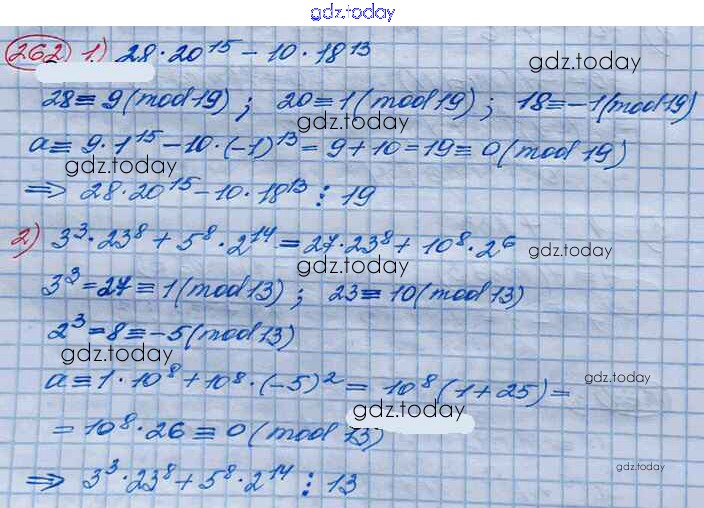 gdz.today
262 1.) 28·20¹⁵ − 10·18¹³
gdz.today
28 ≡ 9 (mod 19) ; 20 ≡ 1 (mod 19) ; 18 ≡ −1 (mod 19)
gdz.today
a ≡ 9·1¹⁵ − 10·(−1)¹³ = 9 + 10 = 19 ≡ 0 (mod 19)
gdz.today
⇒ 28·20¹⁵ − 10·18¹³ ⋮ 19
2) 3³·23⁸ + 5⁸·2¹⁴ = 27·23⁸ + 10⁸·2⁶
gdz.today
gdz.today
3³ = 27 ≡ 1 (mod 13) ; 23 ≡ 10 (mod 13)
2³ = 8 ≡ −5 (mod 13)
gdz.today
a ≡ 1·10⁸ + 10⁸·(−5)² = 10⁸(1 + 25) =
gdz.today
gdz.today
= 10⁸·26 ≡ 0 (mod 13)
gdz.today
⇒ 3³·23⁸ + 5⁸·2¹⁴ ⋮ 13